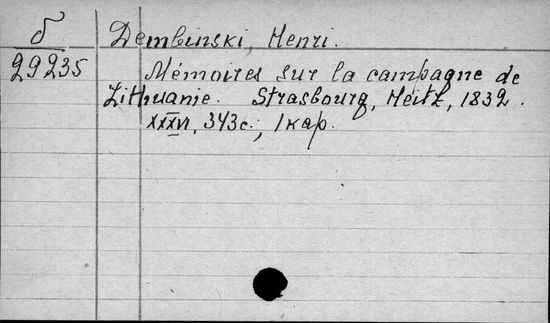 б
29235
Dembinski, Henri.
Mémoires sur la campagne de
Lithuanie. Strasbourg, Heitz, 1832.
XXXVI, 343с., 1 кар.